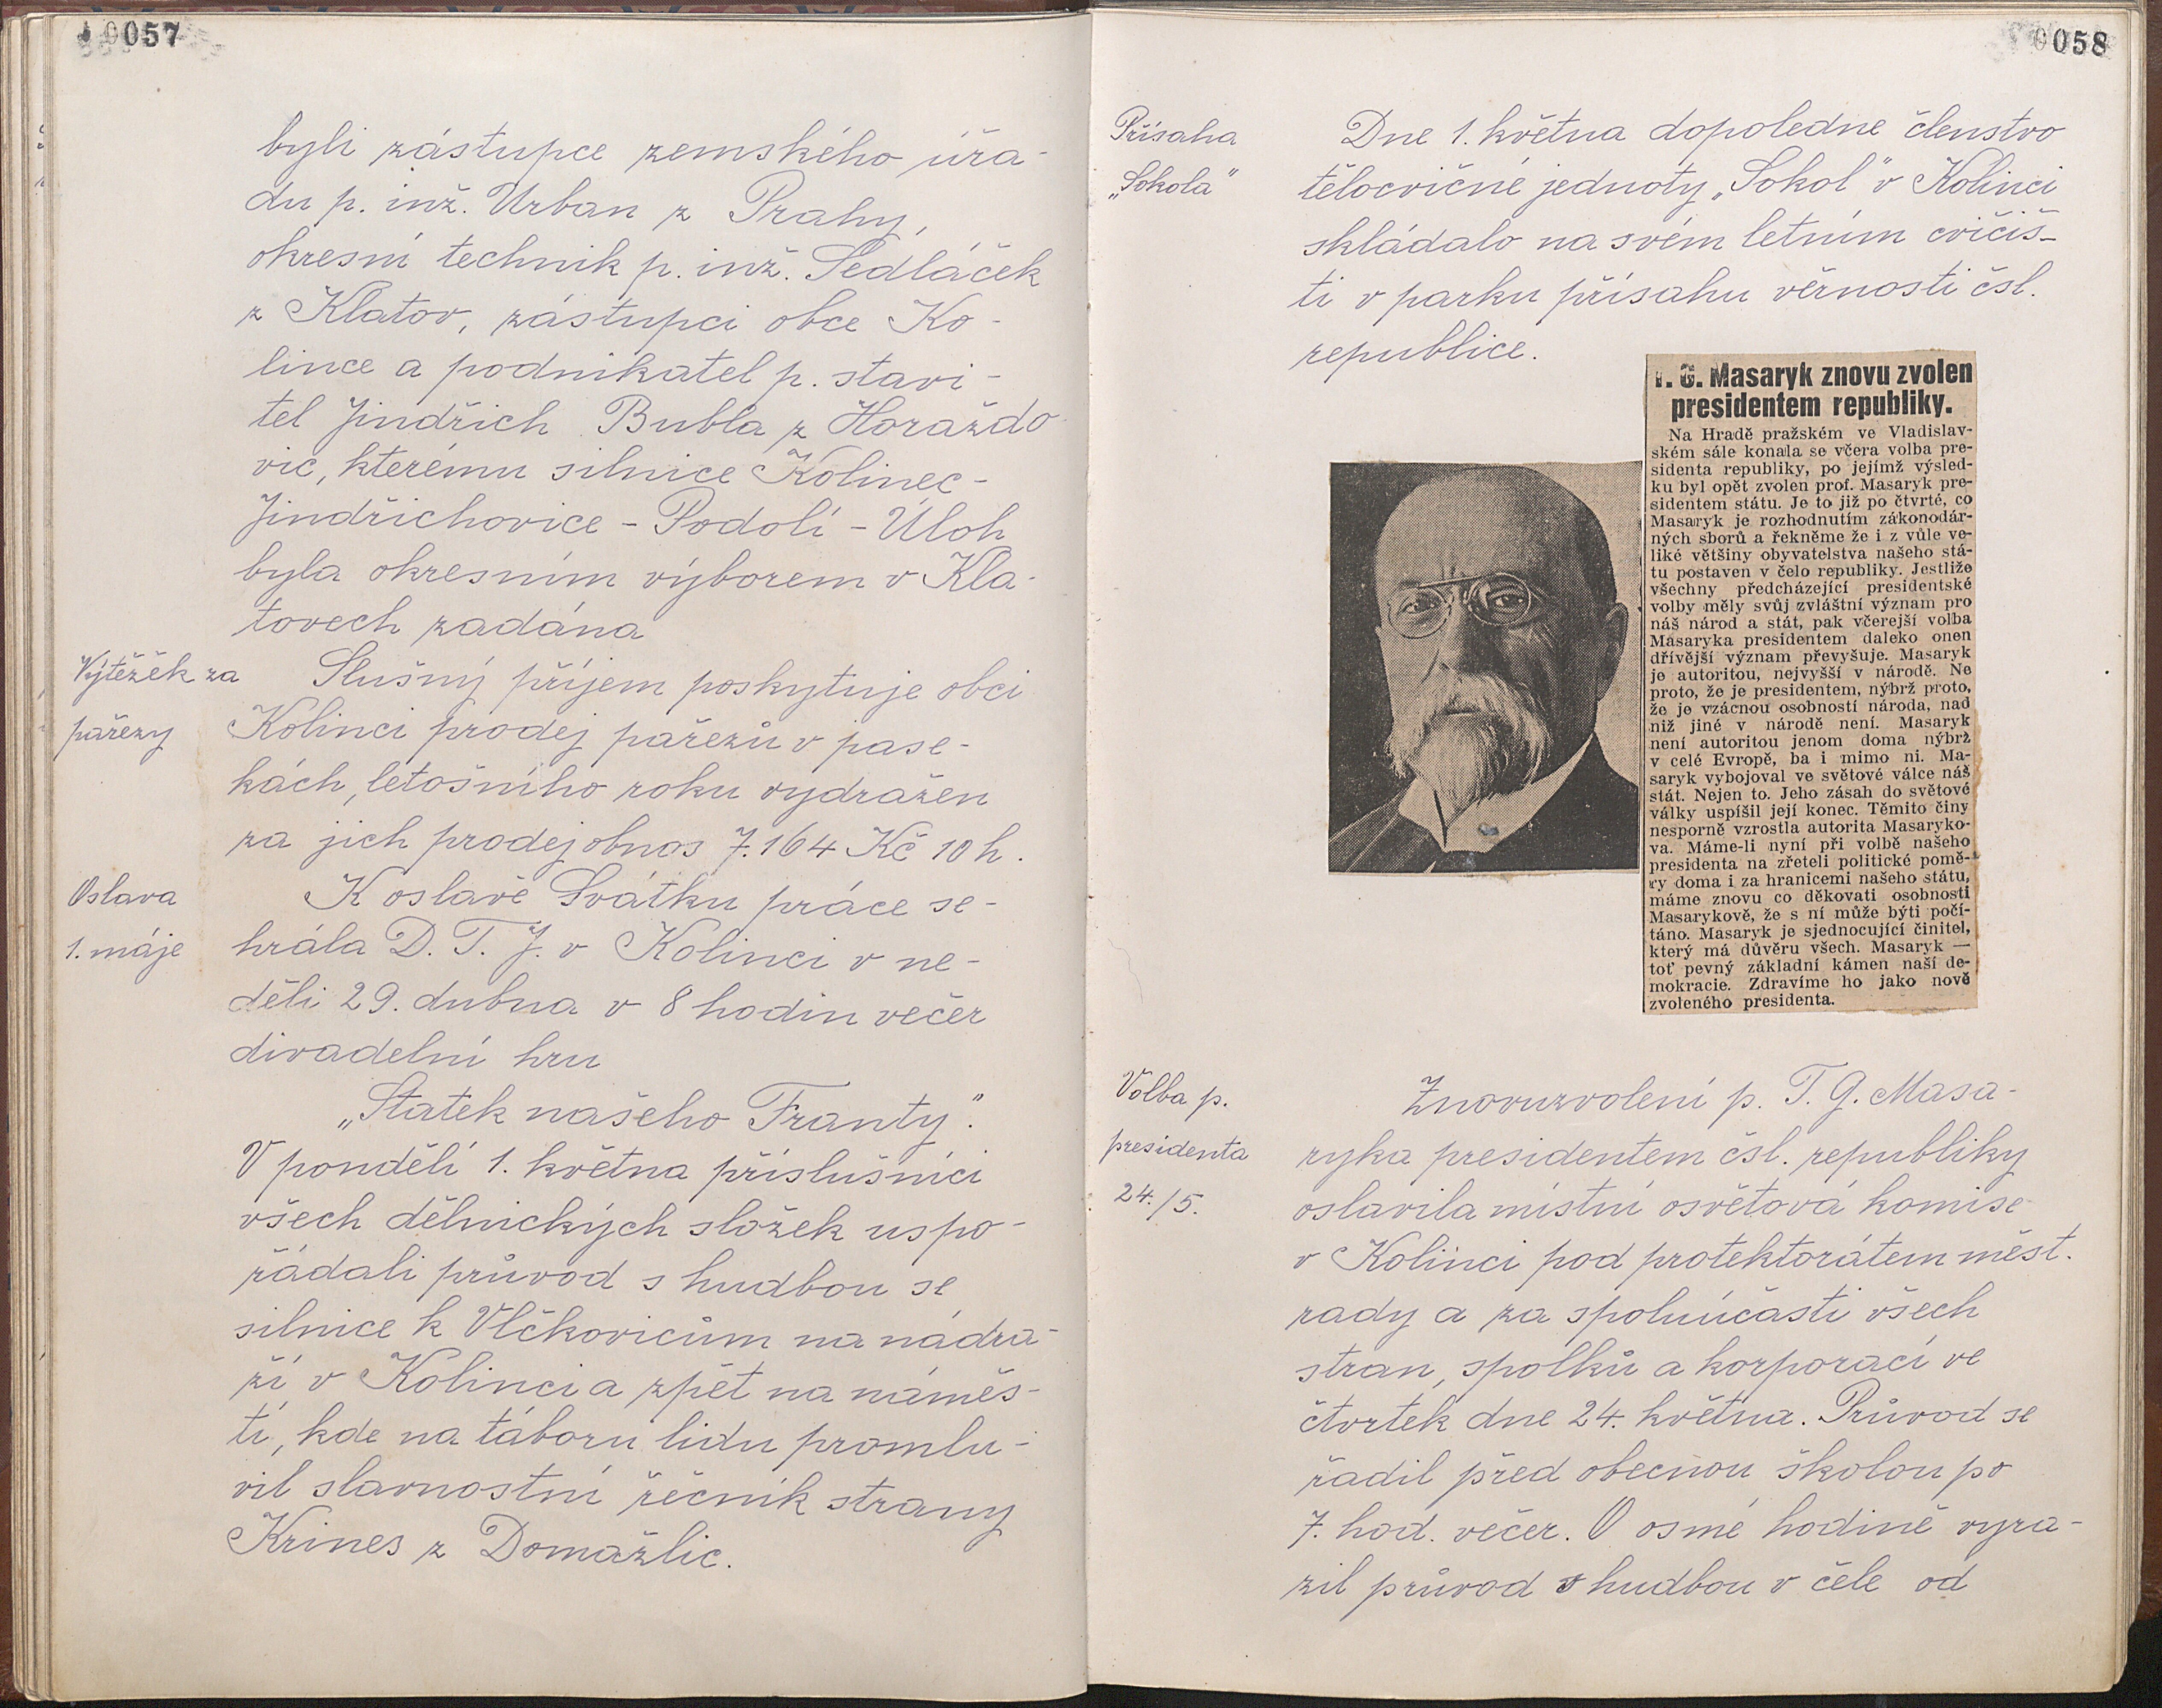 0057
byli zástupce zemského úřa-
du p. inž. Urban z Prahy,
okresní technik p. inž. Sedláček
z Klatov, zástupci obce Ko-
lince a podnikatel p. stavi-
tel Jindřich Bubla z Horaždo-
vic, kterému silnice Kolinec-
Jindřichovice - Podolí - Úloh
byla okresním výborem v Kla-
tovech zadána
Výtěžek za
pařezy
Slušný příjem poskytuje obci
Kolinci prodej pařezů v pase-
kách, letošního roku vydražen
za jich prodej obnos 7.164 Kč 10 h.
Oslava
1. máje
K oslavě Svátku práce se-
hrála D. T. J. v Kolinci v ne-
děli 29. dubna v 8 hodin večer
divadelní hru
„Statek našeho Franty".
V pondělí 1. května příslušníci
všech dělnických složek uspo-
řádali průvod s hudbou se
silnice k Vlčkovicům na nádra-
ží v Kolinci a zpět na náměs-
tí, kde na táboru lidu promlu-
vil slavnostní řečník strany
Krines z Domažlic.
0058
Přísaha
„Sokola"
Dne 1. května dopoledne členstvo
tělocvičné jednoty „Sokol" v Kolinci
skládalo na svém letním cvičiš-
ti v parku přísahu věrnosti čsl.
republice.
T. G. Masaryk znovu zvolen
presidentem republiky.
Na Hradě pražském ve Vladislav-
ském sále konala se včera volba pre-
sidenta republiky, po jejímž výsled-
ku byl opět zvolen prof. Masaryk pre-
sidentem státu. Je to již po čtvrté, co
Masaryk je rozhodnutím zákonodár-
ných sborů a řekněme že i z vůle ve-
liké většiny obyvatelstva našeho stá-
tu postaven v čelo republiky. Jestliže
všechny předcházející presidentské
volby měly svůj zvláštní význam pro
náš národ a stát, pak včerejší volba
Masaryka presidentem daleko onen
dřívější význam převyšuje. Masaryk
je autoritou, nejvyšší v národě. Ne
proto, že je presidentem, nýbrž proto,
že je vzácnou osobností národa, nad
niž jiné v národě není. Masaryk
není autoritou jenom doma nýbrž
v celé Evropě, ba i mimo ni. Ma-
saryk vybojoval ve světové válce náš
stát. Nejen to. Jeho zásah do světové
války uspíšil její konec. Těmito činy
nesporně vzrostla autorita Masaryko-
va. Máme-li nyní při volbě našeho
presidenta na zřeteli politické pomě-
ry doma i za hranicemi našeho státu,
máme znovu co děkovati osobnosti
Masarykově, že s ní může býti počí-
táno. Masaryk je sjednocující činitel,
který má důvěru všech. Masaryk —
toť pevný základní kámen naší de-
mokracie. Zdravíme ho jako nově
zvoleného presidenta.
Volba p.
presidenta
24./5.
Znovuzvolení p. T. G. Masa-
ryka presidentem čsl. republiky
oslavila místní osvětová komise
v Kolinci pod protektorátem měst.
rady a za spoluúčasti všech
stran, spolků a korporací ve
čtvrtek dne 24. května. Průvod se
řadil před obecnou školou po
7. hod. večer. O osmé hodině vyra-
zil průvod s hudbou v čele od